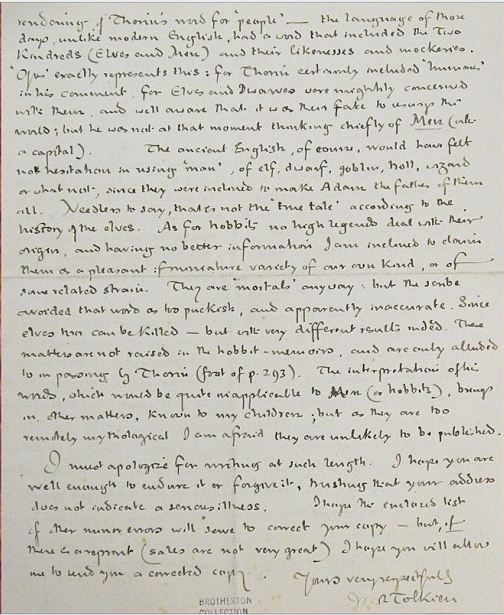 rendering of Thorin's word for 'people' — the language of those
days, unlike modern English, had a word that included the Two
Kindreds (Elves and Men) and their likenesses and mockeries.
'Of us' exactly represents this: for Thorin certainly included 'humans'
in his comment, for Elves and Dwarves were mightily concerned
with them, and well aware that it was their fate to usurp the
world; but he was not at that moment thinking chiefly of Men (with
a capital). The ancient English, of course, would have felt
no hesitation in using 'man', of elf, dwarf, goblin, troll, wizard
or what not, since they were inclined to make Adam the father of them
all. Needless to say, that is not the 'true tale' according to the
history of the elves. As for hobbits no high legends deal with their
origin, and having no better information I am inclined to claim
them as a pleasant if miniature variety of our own kind, or of
some related strain. They are 'mortals' anyway: but the scribe
avoided that word as too puckish, and apparently inaccurate. Since
elves too can be killed — but with very different results indeed. These
matters are not raised in the hobbit-memoirs, and are only alluded
to in passing by Thorin (foot of p. 293). The interpretation of his
words, which would be quite inapplicable to Men (or hobbits), brings
in other matters, known to my children; but as they are too
remotely mythological I am afraid they are unlikely to be published.
I must apologize for writing at such length. I hope you are
well enough to endure it or forgive it, trusting that your address
does not indicate a serious illness. I hope the enclosed list
of other minor errors will serve to correct your copy — but, if
there is a reprint (sales are not very great) I hope you will allow
me to send you a corrected copy.
Yours very respectfully
J R R Tolkien
BROTHERTON
COLLECTION